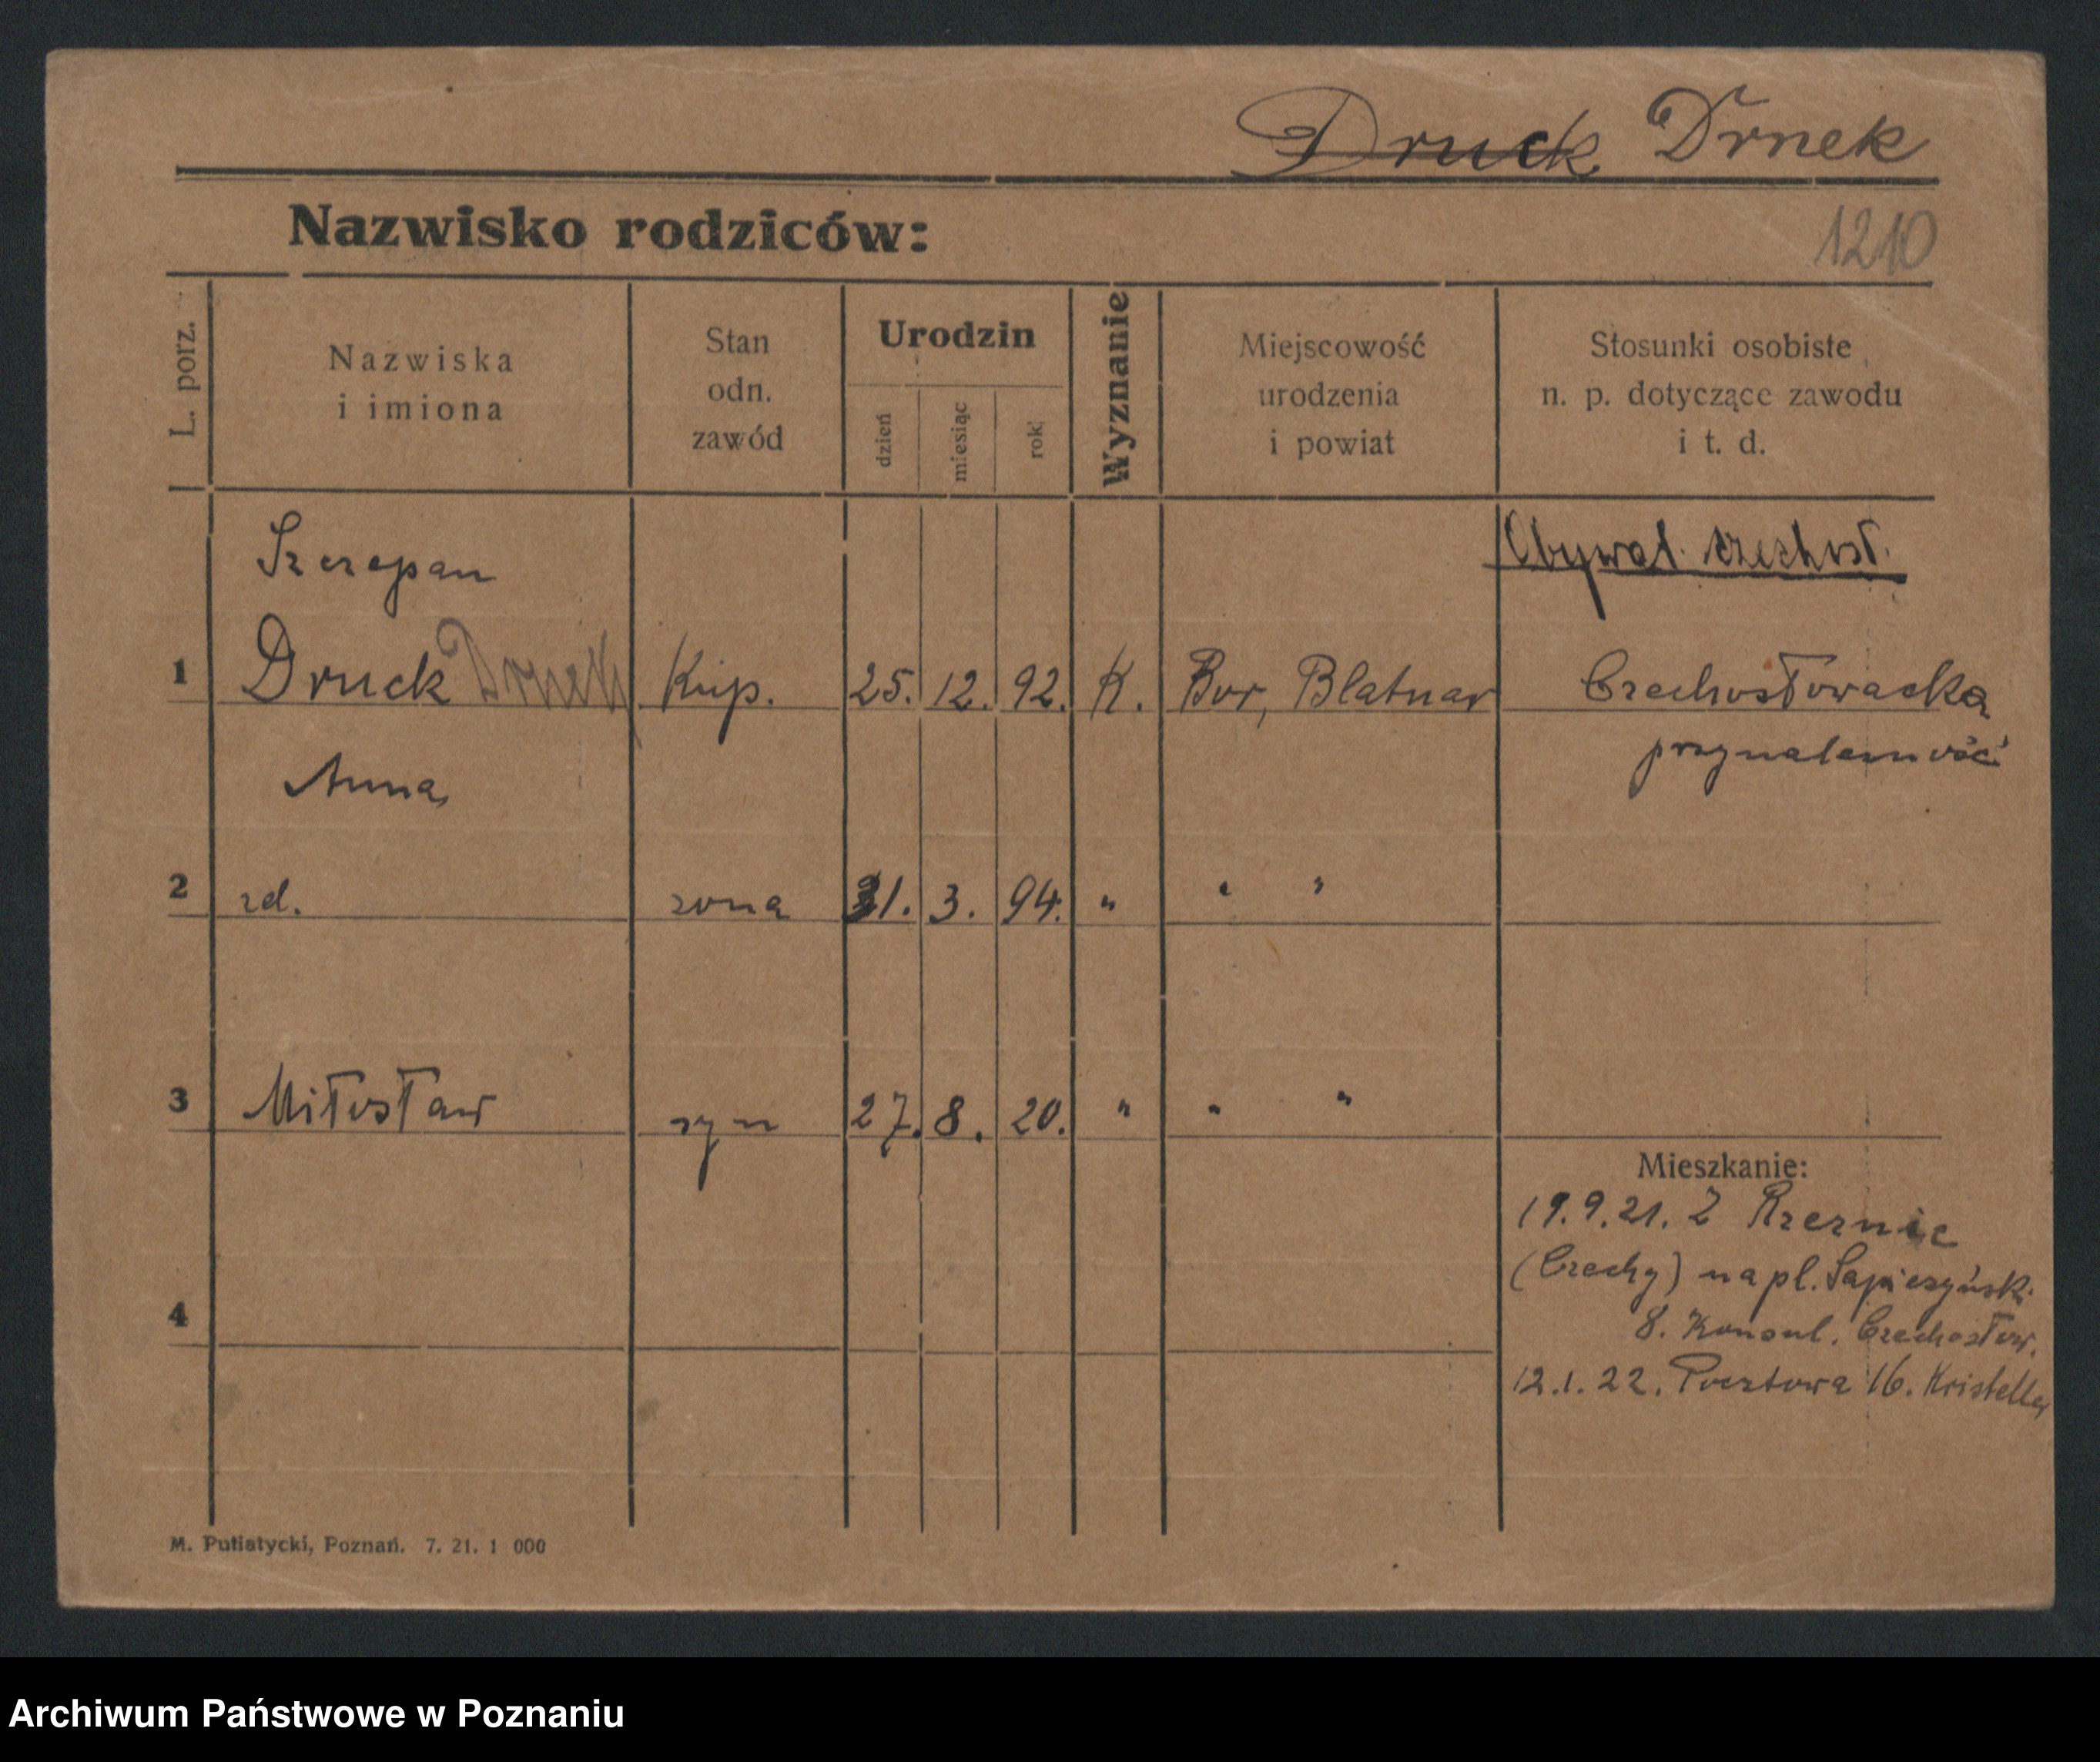 Druck Drnek
Nazwisko rodziców:
1210
L. porz.
Nazwiska
i imiona
Stan
odn.
zawód
Urodzin
dzień
miesiąc
rok
Wyznanie
Miejscowość
urodzenia
i powiat
Stosunki osobiste
n. p. dotyczące zawodu
i t. d.
Obywat. czechosł.
Szczepan
1 Druck Drnek Kup. 25. 12. 92. K. Bor, Blatnar Czechosłowacka
przynależność
Anna
2 zd. żona 31. 3. 94. " " "
3 Miłosław syn 27. 8. 20. " " "
Mieszkanie:
19.9.21. Z
(Czechy) na pl. Sapieżyński
8. Konsul. Czechosłow.
4
12.1.22. Pocztowa 16. Kristeller
M. Putiatycki, Poznań. 7. 21. 1 000
Archiwum Państwowe w Poznaniu